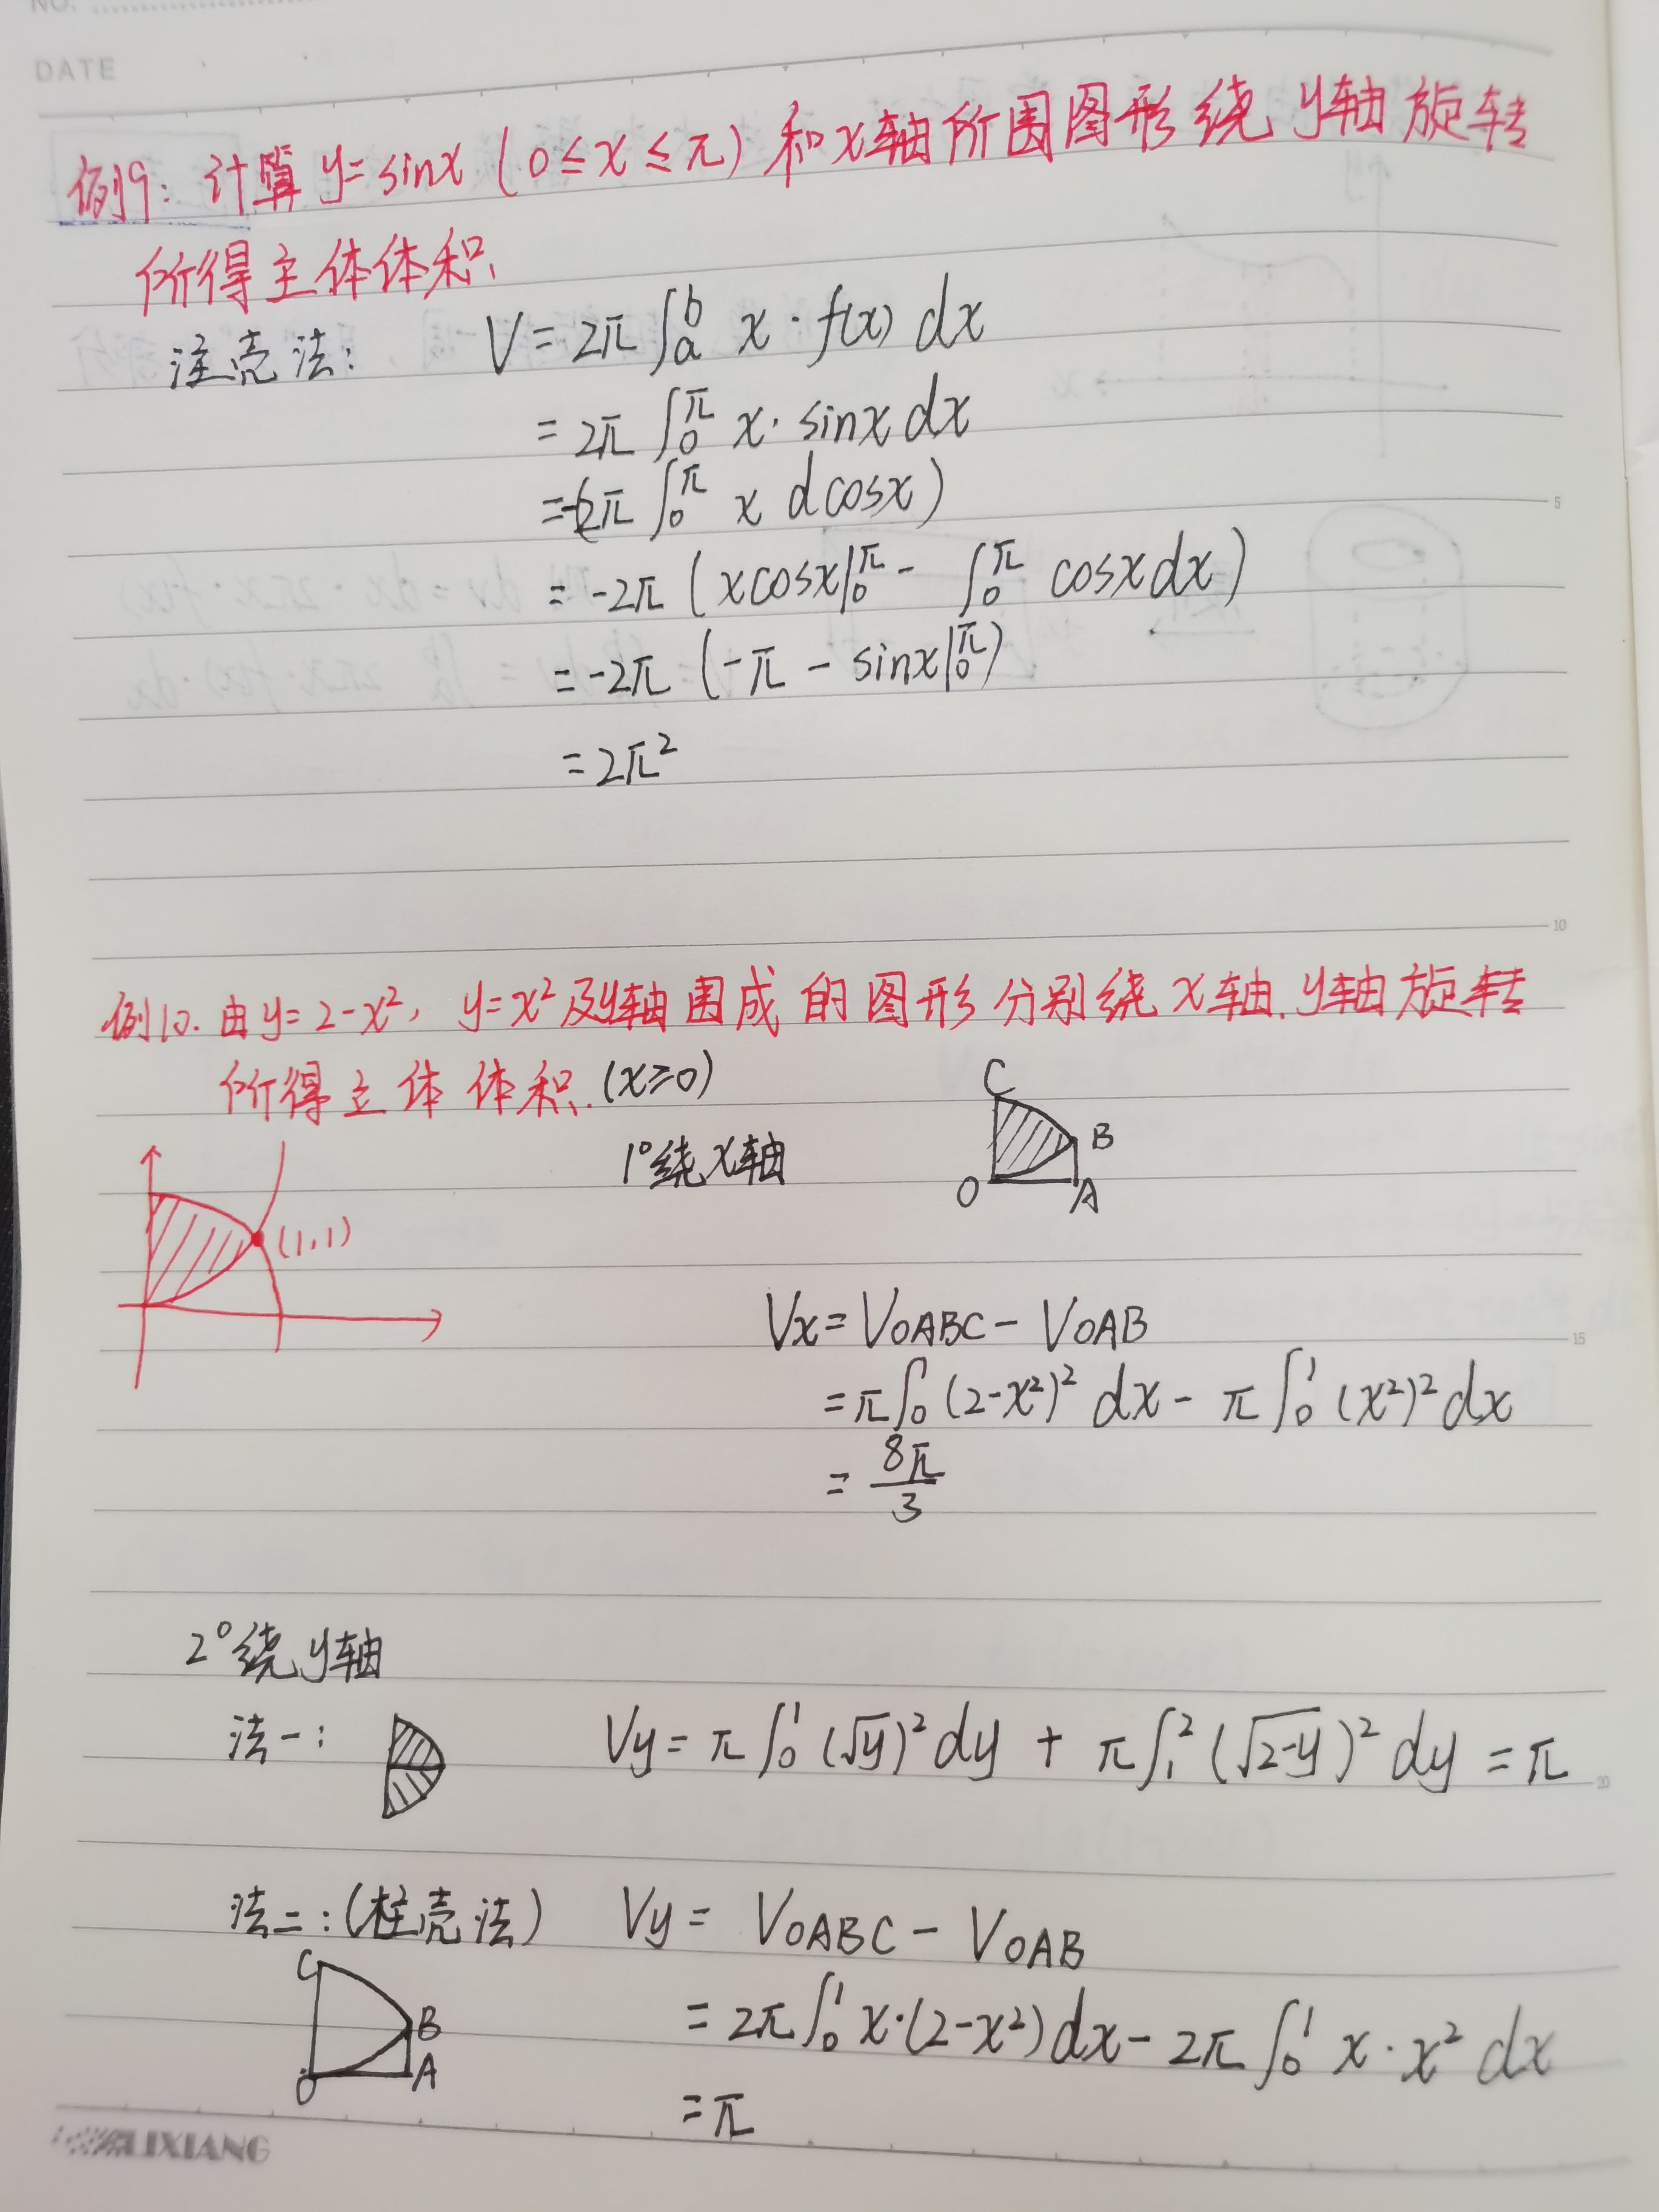 NO.
DATE
例9: 计算 y=sinx (0≤x≤π) 和x轴所围图形绕y轴旋转
所得立体体积
注壳法: V=2π∫_a^b x·f(x) dx
=2π∫_0^π x·sinx dx
=-(2π∫_0^π x dcosx)
=-2π(xcosx|_0^π - ∫_0^π cosxdx)
=-2π(-π-sinx|_0^π)
=2π²
例10. 由y=2-x², y=x²及y轴围成的图形分别绕x轴.y轴旋转
所得立体体积.(x≥0)
1°绕x轴
C
B
O
A
(1,1)
Vx=V_OABC-V_OAB
=π∫_0^1(2-x²)²dx-π∫_0^1(x²)²dx
=8π/3
2°绕y轴
法一: Vy=π∫_0^1(√y)²dy+π∫_1^2(√2-y)²dy=π
法二:(柱壳法) Vy=V_OABC-V_OAB
C
B
A
O
=2π∫_0^1 x·(2-x²)dx-2π∫_0^1 x·x² dx
=π
LIXIANG
5
10
15
20